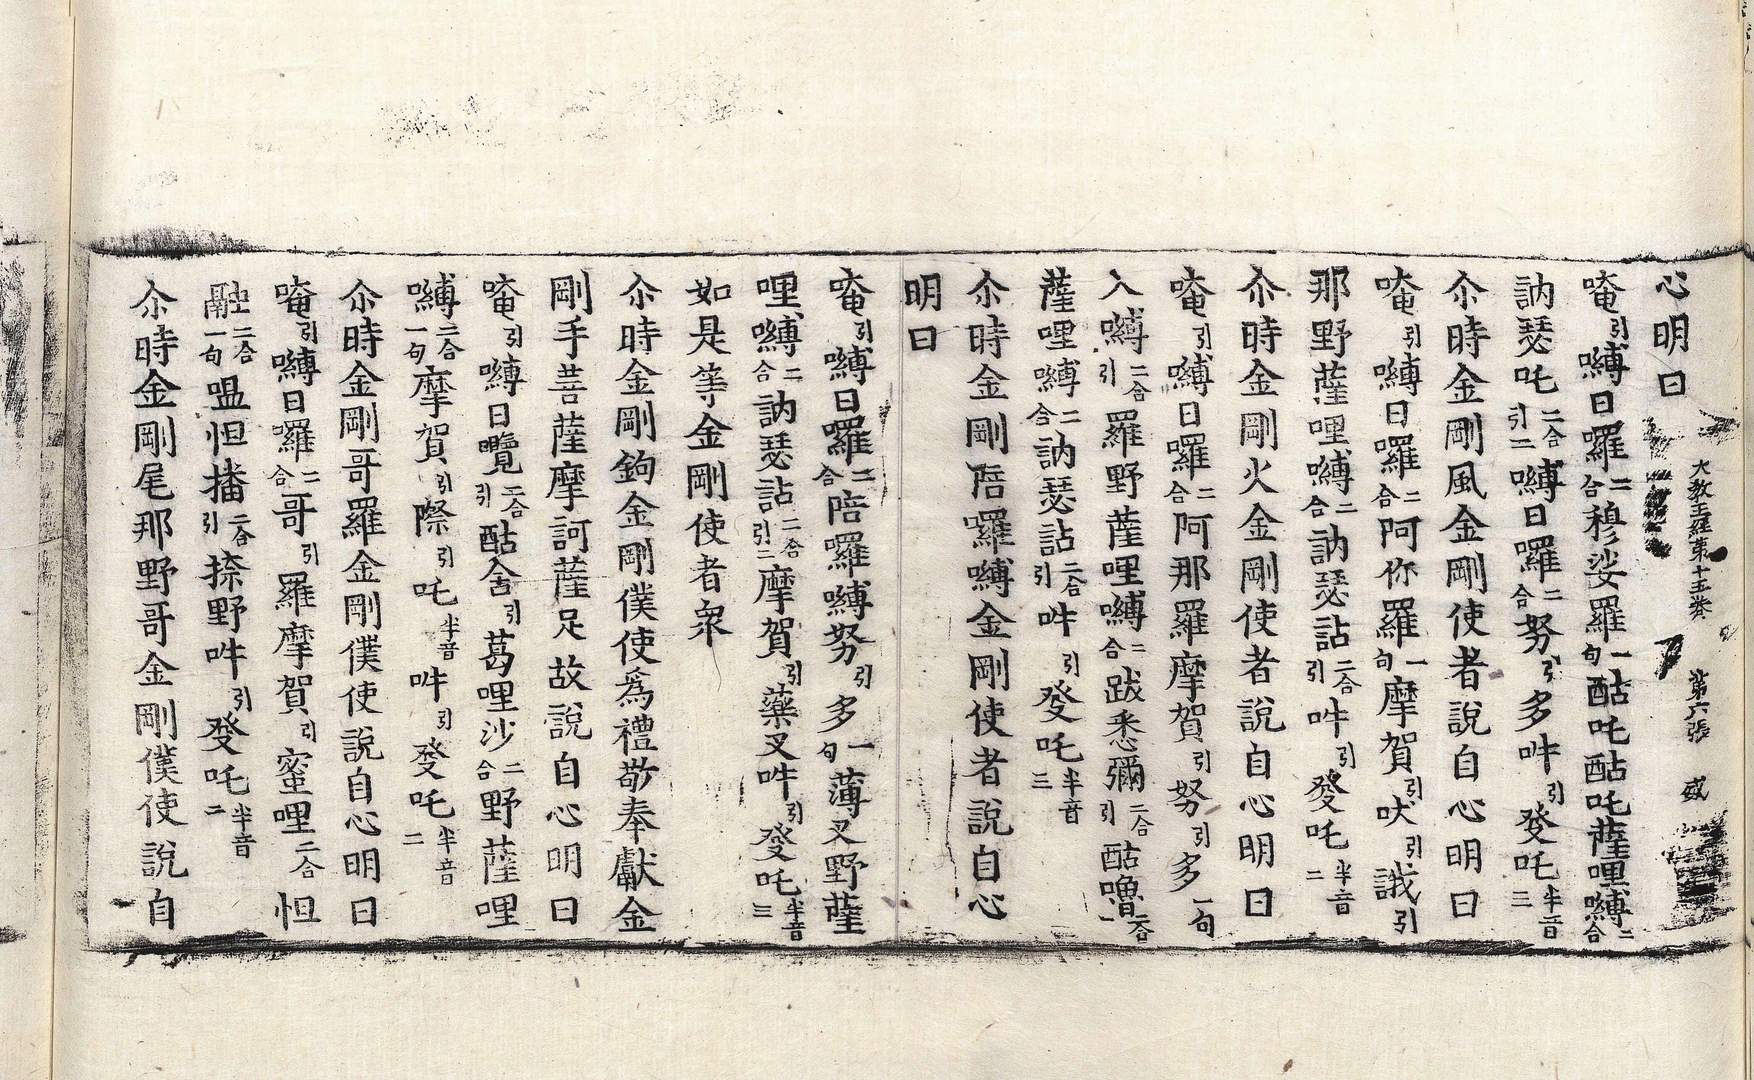 心明曰
大教王經第十五卷 第六張 感
唵引嚩日囉二合穆娑羅一句酤吒酤吒薩哩嚩二合
訥瑟吒二合引二嚩日囉二合努引多吽引癹吒半音三
尒時金剛風金剛使者說自心明曰
唵引嚩日囉二合阿你羅一句摩賀引吠引誐引
那野薩哩嚩二合訥瑟詀二合引吽引癹吒半音二
尒時金剛火金剛使者說自心明曰
唵引嚩日囉二合阿那羅摩賀引努引多一句
入嚩二合引羅野薩哩嚩二合跋悉彌二合引酤嚕二合一
薩哩嚩二合訥瑟詀二合引吽引癹吒半音三
尒時金剛陪囉嚩金剛使者說自心
明曰
唵引嚩日囉二合陪囉嚩努引多一句薄叉野薩
哩嚩二合訥瑟詀二合引二摩賀引藥叉吽引癹吒半音三
如是等金剛使者衆
尒時金剛鉤金剛僕使爲禮敬奉獻金
剛手菩薩摩訶薩足故說自心明曰
唵引嚩日囕二合引酤舍引葛哩沙二合野薩哩
嚩二合一句摩賀引際引吒半音吽引癹吒半音二
尒時金剛哥羅金剛僕使說自心明曰
唵引嚩日囉二合哥引羅摩賀引蜜哩二合怛
融二合一句嗢怛播二合引捺野吽引癹吒半音二
尒時金剛尾那野哥金剛僕使說自